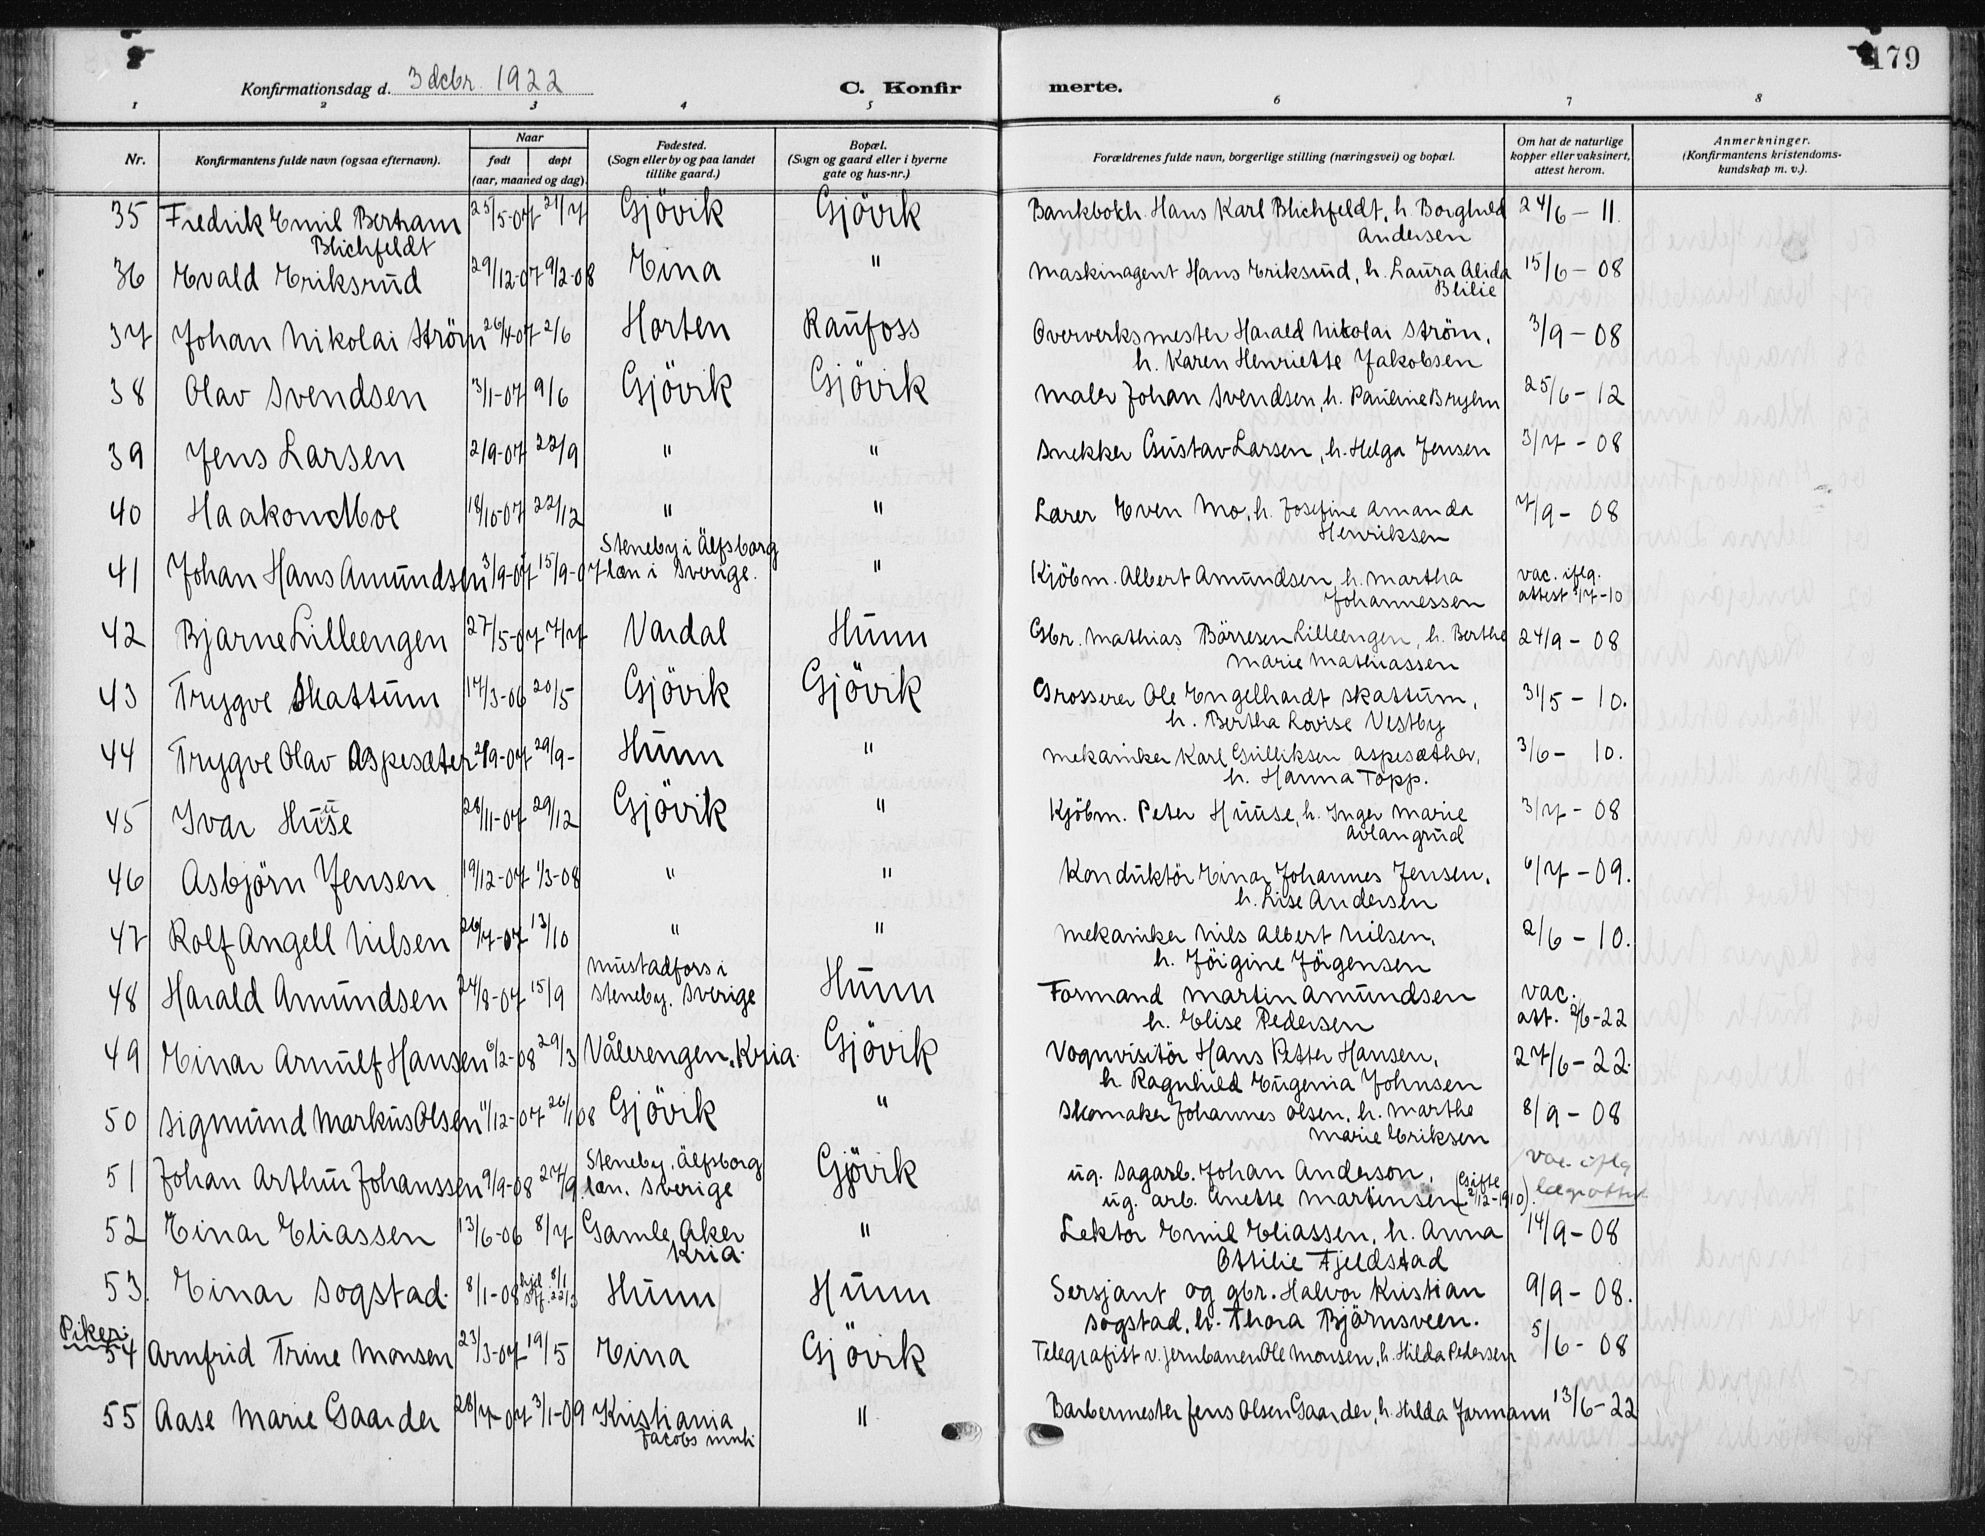 179
Konfirmationsdag d. 3 dcbr. 1922
C. Konfirmerte.
1 2 3 4 5 6 7 8
Nr.
Konfirmantens fulde navn (ogsaa efternavn).
Naar
født
døpt
(aar, maaned og dag).
Fødested.
(Sogn eller by og paa landet
tillike gaard.)
Bopæl.
(Sogn og gaard eller i byerne
gate og hus-nr.)
Forældrenes fulde navn, borgerlige stilling (næringsvei) og bopæl.
Om hat de naturlige
kopper eller vaksinert,
attest herom.
Anmerkninger.
(Konfirmantens kristendoms-
kundskap m. v.).
35 Fredrik Emil Bertram 25/5-07 21/7 Gjövik Gjövik Bankbokh. Hans Karl Blichfeldt, h. Borghild 24/6 - 11.
Blichfeldt Andersen
36 Evald Eriksrud 29/12-07 9/2-08 Eina " Maskinagent Hans Eriksrud, h. Laura Alida 15/6 - 08
Blilie
37 Johan Nikolai Ström 26/4-07 2/6 Horten Raufoss Oververksmester Harald Nikolai Ström, 3/9 - 08
h. Karen Henriette Jakobsen
38 Olav Svendsen 3/11-07 9/6 Gjövik Gjövik Maler Johan Svendsen, h. Pauline Bryhn 25/6 - 12
39 Jens Larsen 2/9-07 22/9 " " Snekker Gustav Larsen, h. Helga Jensen 3/7 - 08
40 Haakon Moe 18/10-07 22/12 " " Lærer Even Mo, h. Josefine Amanda 7/9 - 08
Henriksen
Steneby i Älfsborg
41 Johan Hans Amundsen 3/9-07 15/9-07 læn i Sverige. " Kjöbm. Albert Amundsen, h. Martha vac. iflg.
Johannessen attest 5/7-10
42 Bjarne Lilleengen 27/5-07 7/7 Vardal Hunn Gbr. Mathias Börresen Lilleengen, h. Berthe 24/9 - 08
Marie Mathiassen
43 Trygve Skattum 17/3-06 20/5 Gjövik Gjövik Grosserer Ole Engelhardt Skattum, 31/5 - 10.
h. Bertha Lovise Vestby
44 Trygve Olav Aspesæter 2/9-07 29/9- Hunn " Mekaniker Karl Gulliksen Aspesæther, 3/6 - 10.
h. Hanna Topp.
45 Ivar Huuse 28/11-07 29/12 Gjövik " Kjöbm. Peter Huuse, h. Inger Marie 3/7 - 08
Avlangrud
46 Asbjörn Jensen 19/12-07 1/3-08 " " Konduktör Einar Johannes Jensen, 6/7 - 09.
h. Lise Andersen
47 Rolf Angell Nilsen 26/7-07 13/10 " " Mekaniker Nils Albert Nilsen, 2/6 - 10.
h. Jörgine Jörgensen
Mustadfors i
48 Harald Amundsen 24/8-07 15/9 Steneby. Sverige Hunn Formand Martin Amundsen vac.
h. Elise Pedersen att. 2/6-22
49 Einar Arnulf Hansen 6/2-08 29/3 Vålerengen, Kria. Gjövik Vognvisitör Hans Petter Hansen, 27/6 - 22.
h. Ragnhild Eugenia Johnsen
50 Sigmund Markus Olsen 11/12-07 26/1 08 Gjövik " Skomaker Johannes Olsen, h. Marthe 8/9 - 08
Marie Eriksen
Steneby, Älfsborg
51 Johan Arthur Johanssen 9/9-08 27/9 læn. Sverige Gjövik ug. sagarb. Johan Anderson, vac. iflg
ug. arb. Anette Martinsen (Gifte 2/12-1910). lægeattest
52 Einar Eliassen 13/6-06 8/7 Gamle Aker " Lektor Emil Eliassen, h. Anna 14/9 - 08
Kria. Ottilie Fjeldstad
53. Einar Sogstad. 8/1-08 hjd. 8/1 stf. 22/3 Hunn Hunn Sersjant og gbr. Halvor Kristian 9/9 - 08.
Sogstad, h. Thora Björnsveen.
Piker:
54 Arnfrid Trine Monsen 23/3-07 19/5 Eina Gjövik Telegrafist v. jernbanen Ole Monsen, h. Hilda Pedersen 5/6 - 08
55 Aase Marie Gaarder 28/7-07 3/1-09 Kristiania " Barbermester Jens Olsen Gaarder, h. Hilda Jarmann 13/6-22
Jacobs mnh